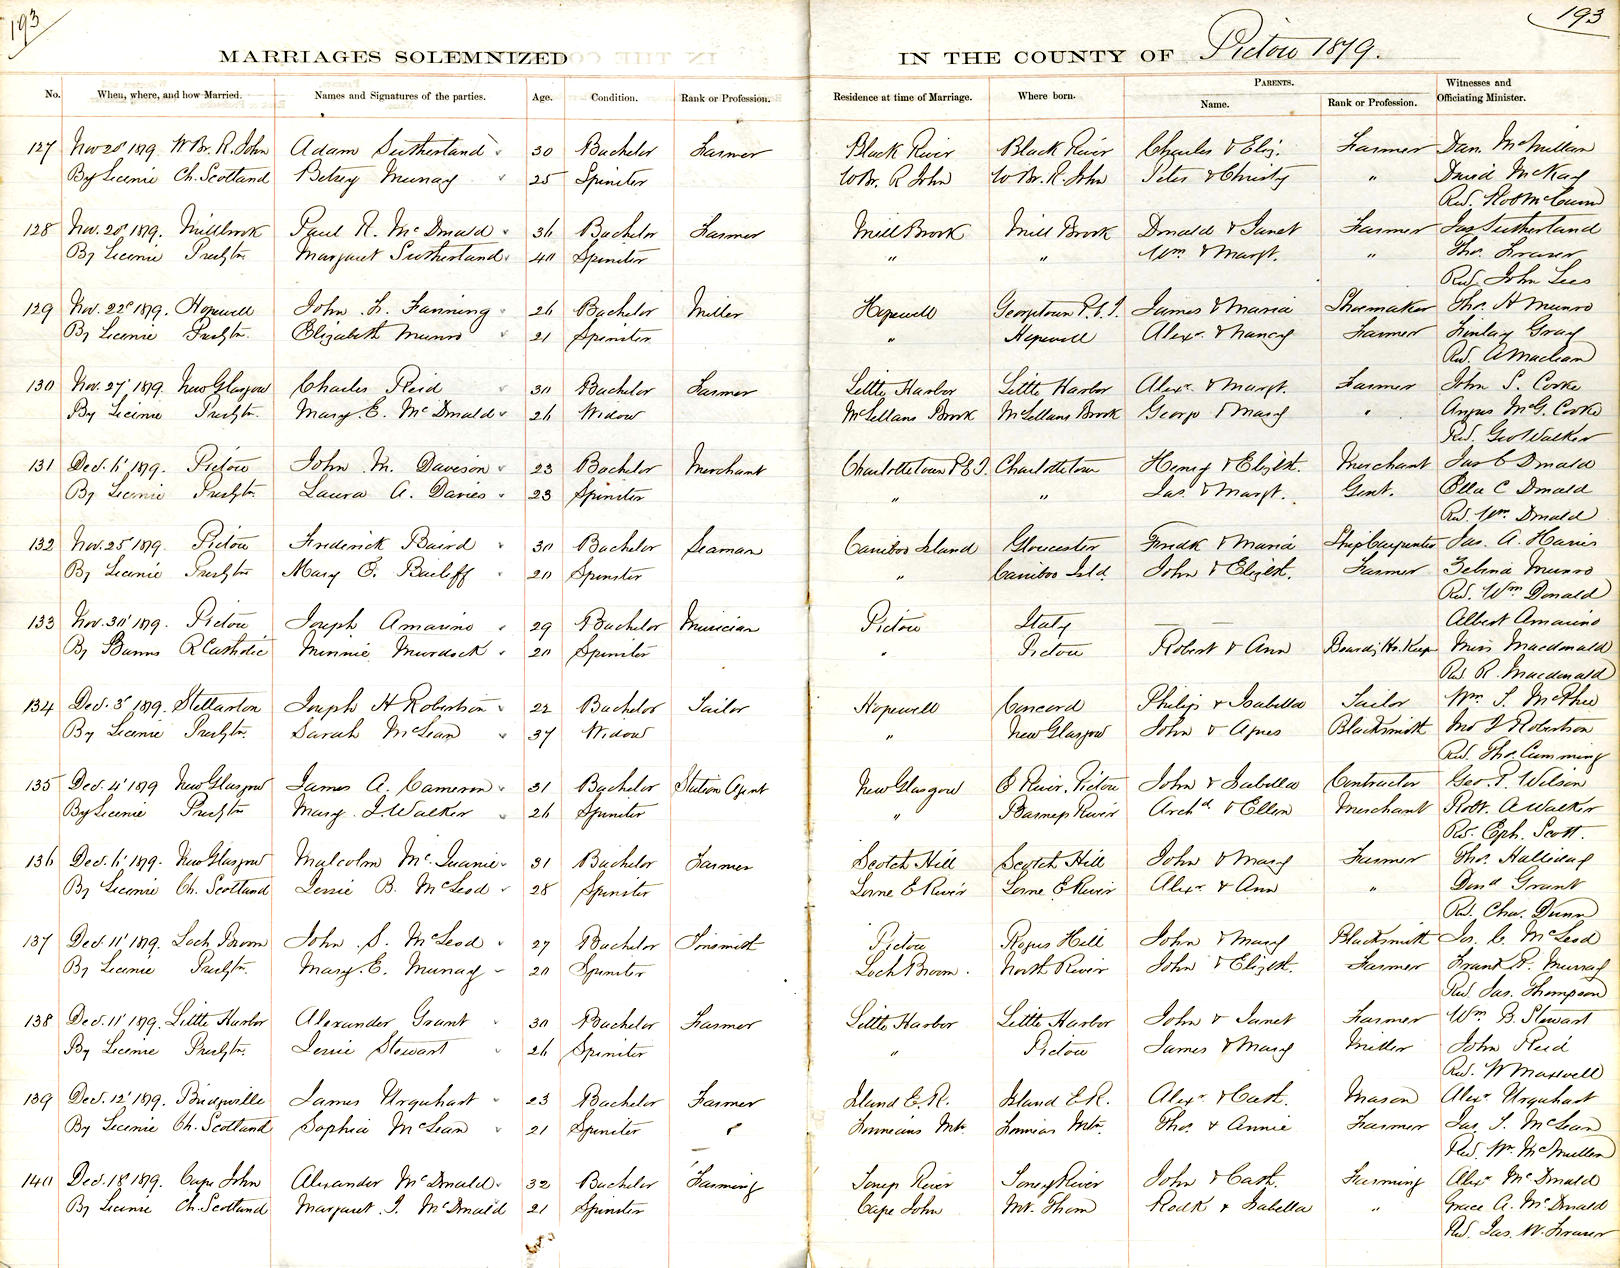 193
193
MARRIAGES SOLEMNIZED IN THE COUNTY OF Pictou 1879.
No. When, where, and how Married. Names and Signatures of the parties. Age. Condition. Rank or Profession. Residence at time of Marriage. Where born. PARENTS. Name. Rank or Profession. Witnesses and Officiating Minister.
127 Nov 20' 1879. W Br. R. John Adam Sutherland 30 Bachelor Farmer Black River Black River Charles & Eliz. Farmer Dan. McMillan
By Licenie Ch. Scotland Betsey Murray 25 Spinster W Br. R John W Br. R. John Peter & Christy " David McKay
Rev. Robt McCunn
128 Nov. 20' 1879. Millbrook Paul R. McDonald 36 Bachelor Farmer Mill Brook Mill Brook Donald & Janet Farmer Jas Sutherland
By Licenie Presbytn. Margaret Sutherland 40 Spinster " " Wm & Margt. " Thos. Fraser
Rev. John Lees
129 Nov. 22' 1879. Hopewell John F. Fanning 26 Bachelor Miller Hopewell Georgetown P.E.I. James & Maria Shoemaker Thos. H Munro
By Licenie Presbytn. Elizabeth Munro 21 Spinster " Hopewell Alexr. & Nancy Farmer Finlay Gray
Rev. A Maclean
130 Nov. 27' 1879. New Glasgow Charles Reid 30 Bachelor Farmer Little Harbor Little Harbor Alexr. & Margt. Farmer John S. Cooke
By Licenie Presbytn. Mary. E. McDonald 26 Widow McLellans Brook McLellans Brook George & Mary " Angus McG. Cooke
Rev. Geo Walker
131 Dec. 1' 1879. Pictou John M. Davison 23 Bachelor Merchant Charlottetown P.E.I. Charlottetown Henry & Elizbt. Merchant Jas C Donald
By Licenie Presbytn. Laura A. Davies 23 Spinster " " Jas. & Margt. Gent. Ella C Donald
Rev. Wm. Donald
132 Nov. 25' 1879. Pictou Frederick Baird 30 Bachelor Seaman Cariboo Island Gloucester Fredk & Maria Ship Carpenter Jas. A. Harris
By Licenie Presbytn Mary E. Bailiff 20 Spinster " Cariboo Isld. John & Elizbt. Farmer Zelina Munro
Rev. Wm Donald
133 Nov. 30' 1879. Pictou Joseph Amarino 29 Bachelor Musician Pictou Italy — — Albert Amarino
By Banns R Catholic Minnie Murdock 20 Spinster " Pictou Robert & Ann Boardg Ho. Keeper Miss Macdonald
Rev R. Macdonald
134 Dec. 3' 1879. Stellarton Joseph H Robertson 22 Bachelor Tailor Hopewell Concord Philip & Isabella Tailor Wm. S. McPhee
By Licenie Presbytn. Sarah McLean 37 Widow " New Glasgow John & Agnes Blacksmith Robertson
Rev. Thos. Cumming
135 Dec. 4' 1879 New Glasgow James A. Cameron 31 Bachelor Station Agent New Glasgow E River, Pictou John & Isabella Contractor Geo. P. Wilson
By Licenie Presbytn Mary. J. Walker 26 Spinster " Barneys River Archd & Ellen Merchant Robt. A Walker
Rev. Eph. Scott.
136 Dec. 6' 1879. New Glasgow Malcolm McQuarrie 31 Bachelor Farmer Scotch Hill Scotch Hill John & Mary Farmer Thos. Halliday
By Licenie Ch. Scotland Jessie B. McLeod 28 Spinster Lorne E River Lorne E River Alexr & Ann " Dond Grant
Rev. Chas. Dunn
137 Dec. 11' 1879. Loch Broom John S. McLeod 27 Bachelor Tinsmith Pictou Rogers Hill John & Mary Blacksmith Jos. C. McLeod
By Licenie Presbytn. Mary. E. Murray 20 Spinster Loch Broom. North River John & Elizbt. Farmer Frank R. Murray
Rev. Jas. Thompson
138 Dec. 11' 1879. Little Harbor Alexander Grant 30 Bachelor Farmer Little Harbor Little Harbor John & Janet Farmer Wm B. Stewart
By Licenie Presbytn. Jessie Stewart 26 Spinster " Pictou James & Mary Miller John Reid
Rev. W Maxwell
139 Dec. 12' 1879. Bridgeville James Urquhart 23 Bachelor Farmer Island E.R. Island E.R. Alexr & Cath. Mason Alexr Urquhart
By Licenie Ch. Scotland Sophia McLean 21 Spinster " Mtn. Mtn. Thos. & Annie Farmer Jas. S. McLean
Rev. Wm. McMillan
140 Dec. 18' 1879. Cape John Alexander McDonald 32 Bachelor Farming Toney River Toney River John & Cath. Farming Alexr McDonald
By Licenie Ch. Scotland Margaret J. McDonald 21 Spinster Cape John Mt. Thom Rodk & Isabella " Grace A. McDonald
Rev. Jas. W. Fraser